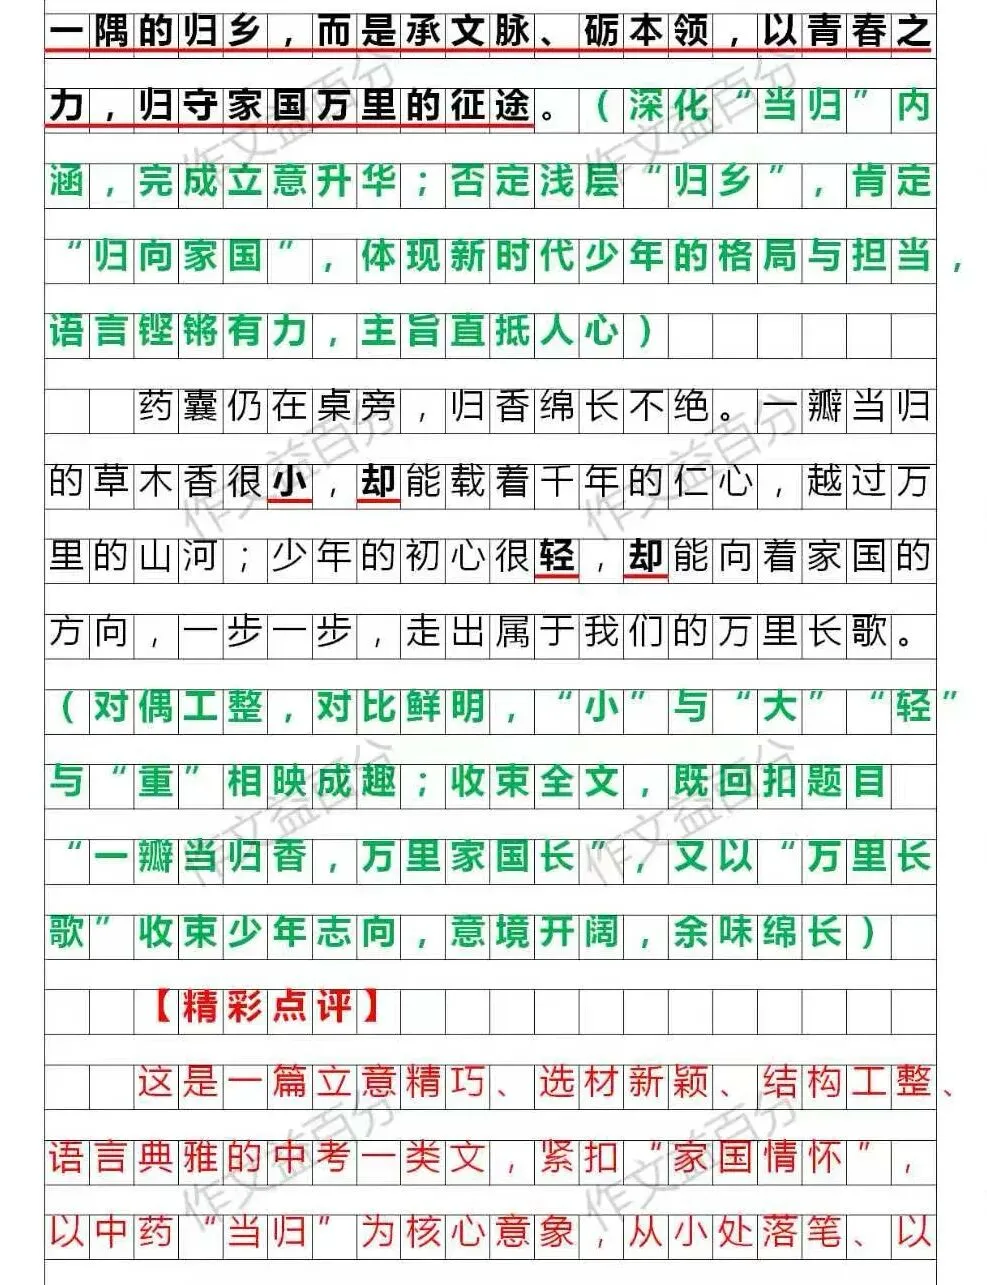 一隅的归乡，而是承文脉、砺本领，以青春之
力，归守家国万里的征途。（深化“当归”内
涵，完成立意升华；否定浅层“归乡”，肯定
“归向家国”，体现新时代少年的格局与担当，
语言铿锵有力，主旨直抵人心）
药囊仍在桌旁，归香绵长不绝。一瓣当归
的草木香很小，却能载着千年的仁心，越过万
里的山河；少年的初心很轻，却能向着家国的
方向，一步一步，走出属于我们的万里长歌。
（对偶工整，对比鲜明，“小”与“大”“轻”
与“重”相映成趣；收束全文，既回扣题目
“一瓣当归香，万里家国长”，又以“万里长
歌”收束少年志向，意境开阔，余味绵长）
【精彩点评】
这是一篇立意精巧、选材新颖、结构工整、
语言典雅的中考一类文，紧扣“家国情怀”，
以中药“当归”为核心意象，从小处落笔、以
作文益百分
作文益百分
作文益百分
作文益百分
作文益百分
作文益百分
作文益百分
作文益百分